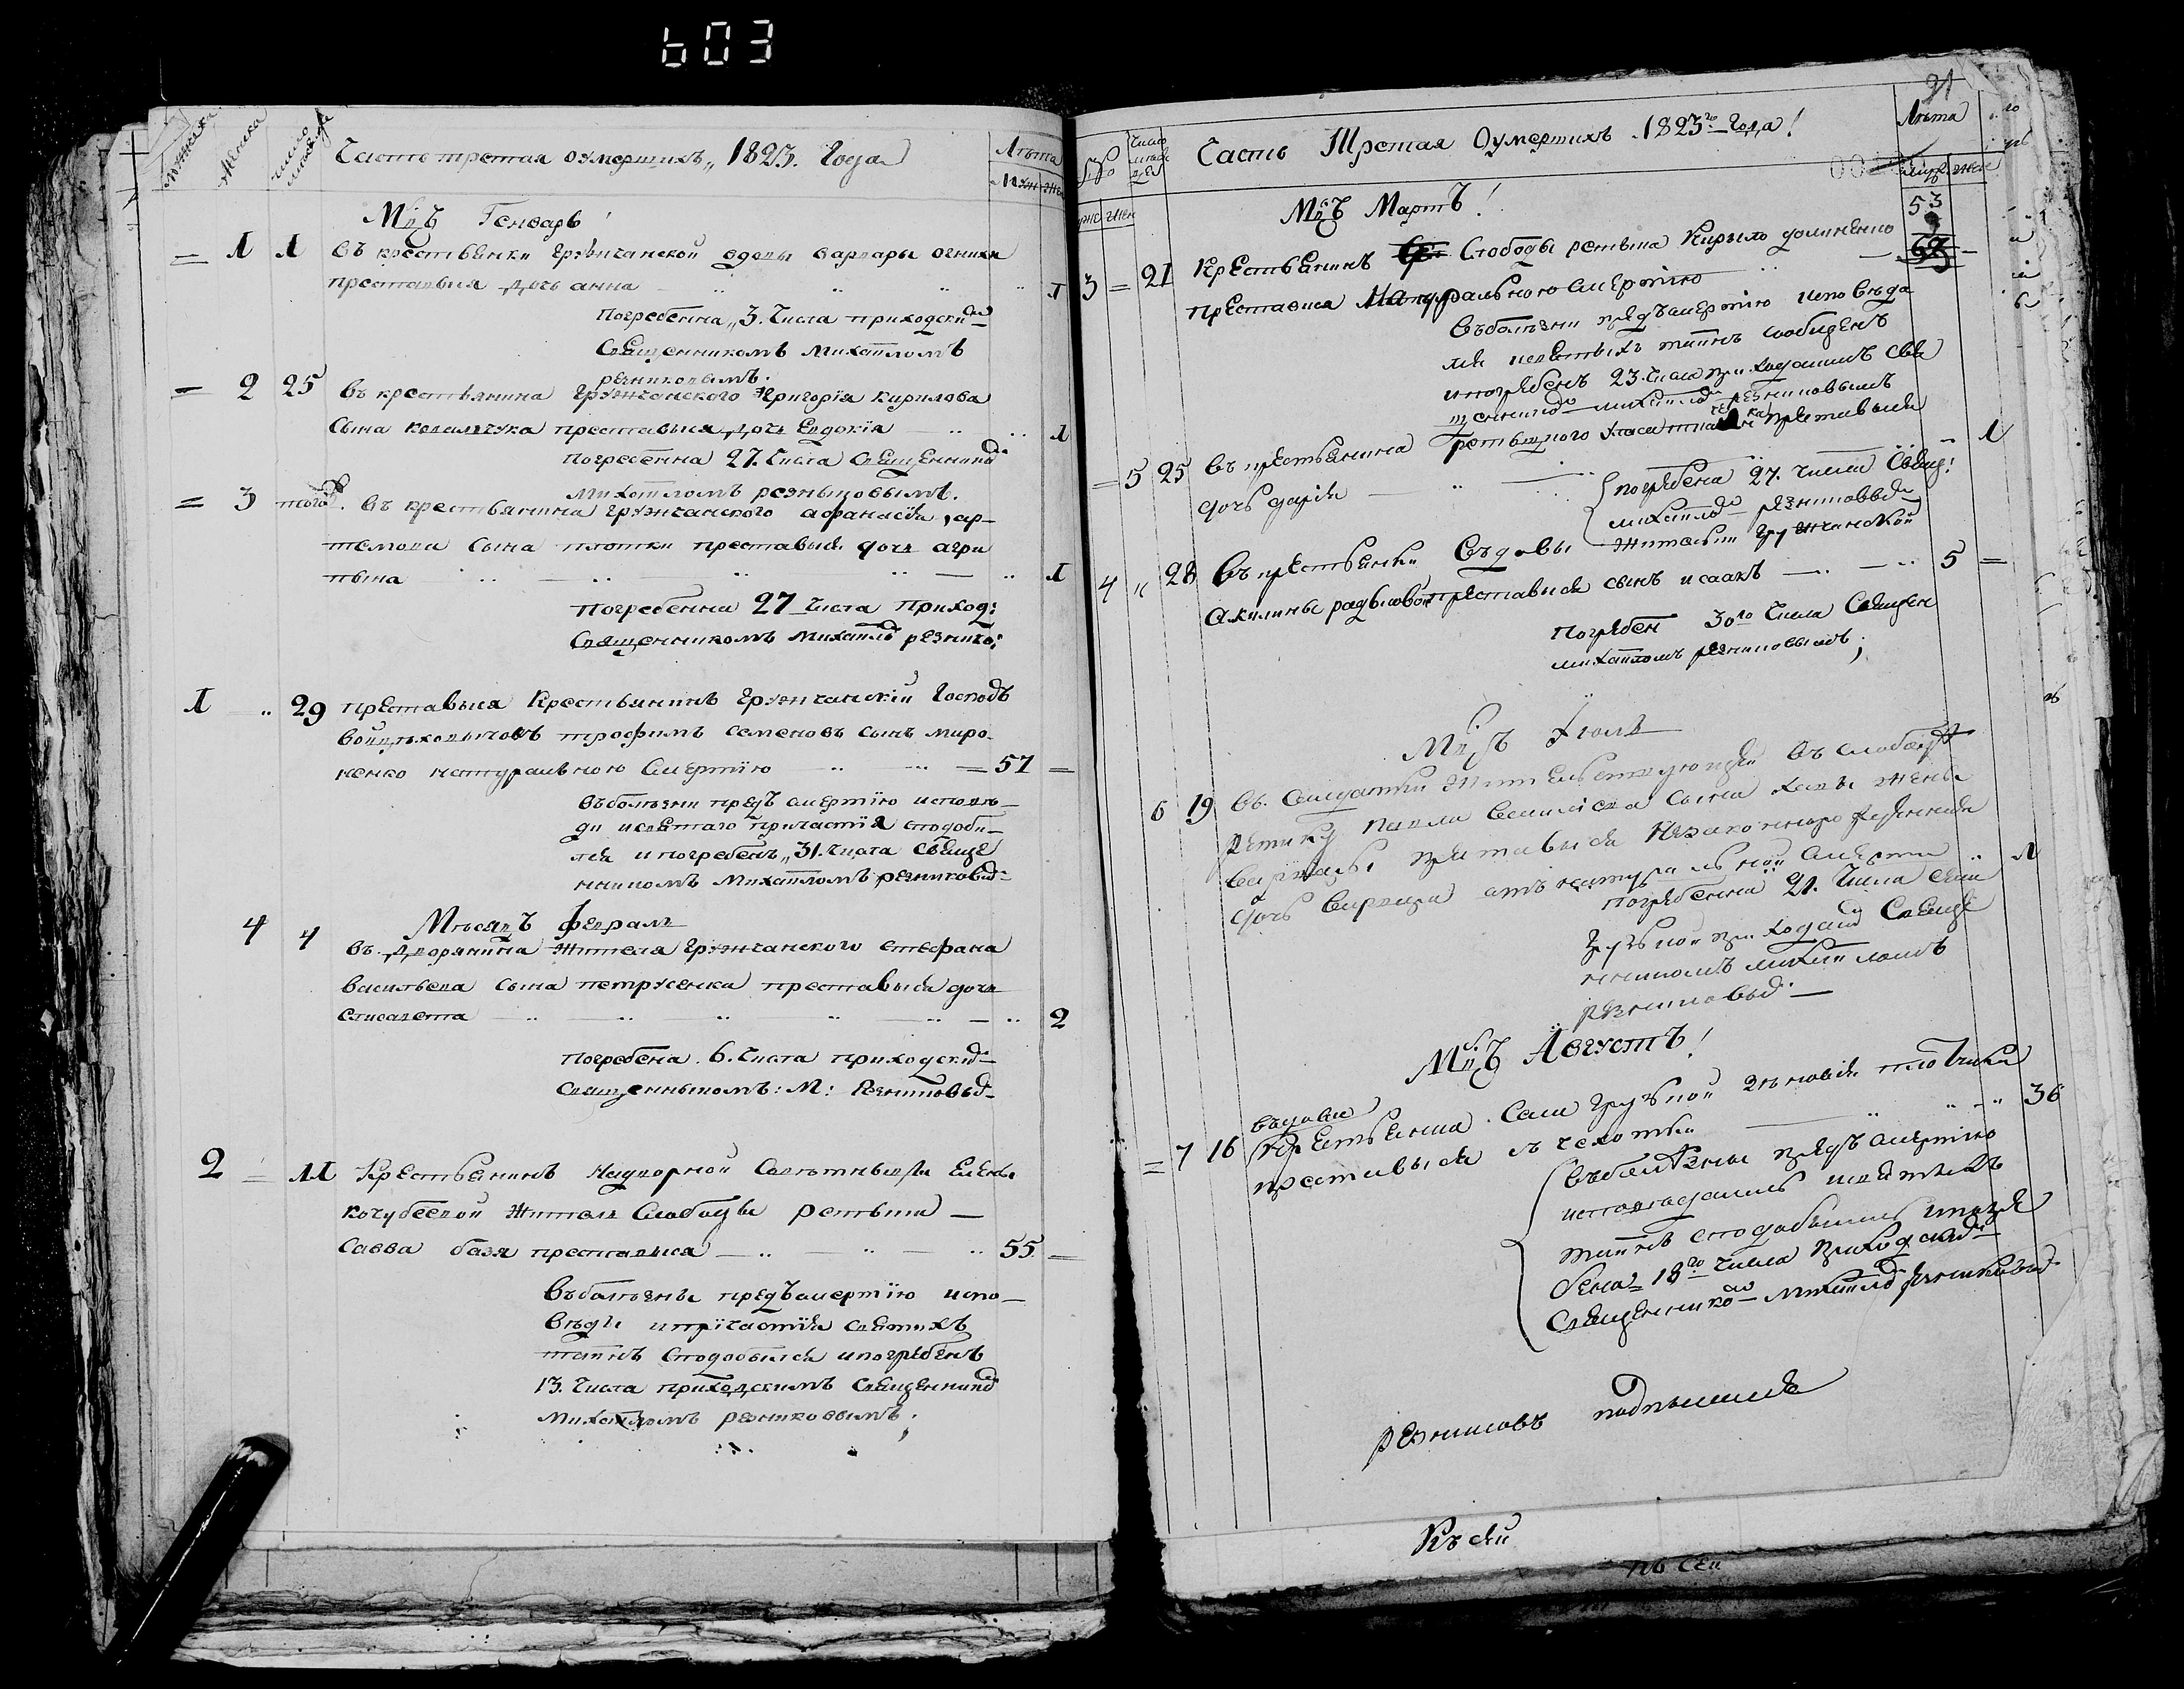 603
мужеска
женска
число месяце
Часть третая оумершихъ,, 1823. Года
Лѣта
Муж Жен
Мцъ Генварь!
= 1 1 въ крестьянки грузчанской вдовы варвары
преставися дочь анна 1
Погребенна,, 3. Числа приходским
Священникомъ Михаиломъ
резниковымъ.
= 2 25 въ крестьянина грузчанского Григорія Кирилова
Сына Ковалчука преставися дочь Евдокія 1
Погребенна 27. Числа Священником
Михаиломъ резныковымъ.
= 3 того. въ крестьянина грузчанского афанасія, ар-
темова Сына плотки преставися дочь агри
пына 1
Погребенна 27 Числа Приход:
Священникомъ Михаилом резнико:
1 29 преставися Крестьянинъ грузчанскій Господъ
трофимъ семеновъ сынъ миро-
ненко натуральною Смертію = 57 =
въ болѣзни предъ смертію исповѣ-
ди и святаго причастія сподоби-
лся и погребенъ,, 31. Числа Свяще
нникомъ Михаиломъ резниковым
Мѣсяцъ февраль
4 4 въ Дворянина Жителя Грузчанского стефана
васильева Сына петрусенка преставися дочь
елисавета 2
Погребена. 6. Числа приходским
Священныкомъ: М: Резниковым
2 = 11 Крестьянинъ Надворной Совѣтныцы Елены
кочубеевой Житель Слободы ретыка —
Савва база преставися 55 =
въ болѣзны предъ смертію испо-
вѣды и прічастія святихъ
таинъ Сподобылся и погребенъ
13. Числа приходскимъ Священником
Михаиломъ резниковымъ;
21
Число месяцей
Часть Третая Оумершихъ 1823го Года!
Лѣта
муж жен
муж жен
Мцъ Мартъ!
53
3 = 21 Крестьянинъ Слободы ретыка Кирыло долиненко 63 =
преставися Натуральною смертію
въ болѣзни предъ смертію исповѣда
лся и святыхъ таинъ сообщенъ
и погребенъ 23. Числа приходскимъ свя
щенником михаилом резниковымъ
= 5 25 въ крестьянина ретыцкого преставися
дочь дарія 1
погребена 27. числа Свящ:
михаилом резниковым
4 ,, 28 въ крестьянки вдовы жителки грузчанской
Акилины преставися сынъ исаакъ 5 =
Погребен 30го Числа Священ
михаиломъ резниковымъ;
Мцъ Іюль
6 19 въ. Солдатки жительствующей въ слободѣ
ретику павла василіева сына жены
варвары преставися Незаконнорожденная
дочь варвара отъ натуральной смерти 1
погребенна 21. Числа
грузкой приходским Свяще
нникомъ михаиломъ
резниковым —
Мцъ Августъ!
вдова
= 7 16 Крестьянина. Села Грузкой 36
преставися съ чехотки
въ болѣзны предъ смертію
исповѣдалась и святыхъ
таинъ сподобылась и погре
бена = 18го числа приходским
Священником Михаилом резниковым
резниковъ подписался
Къ сей
къ сей